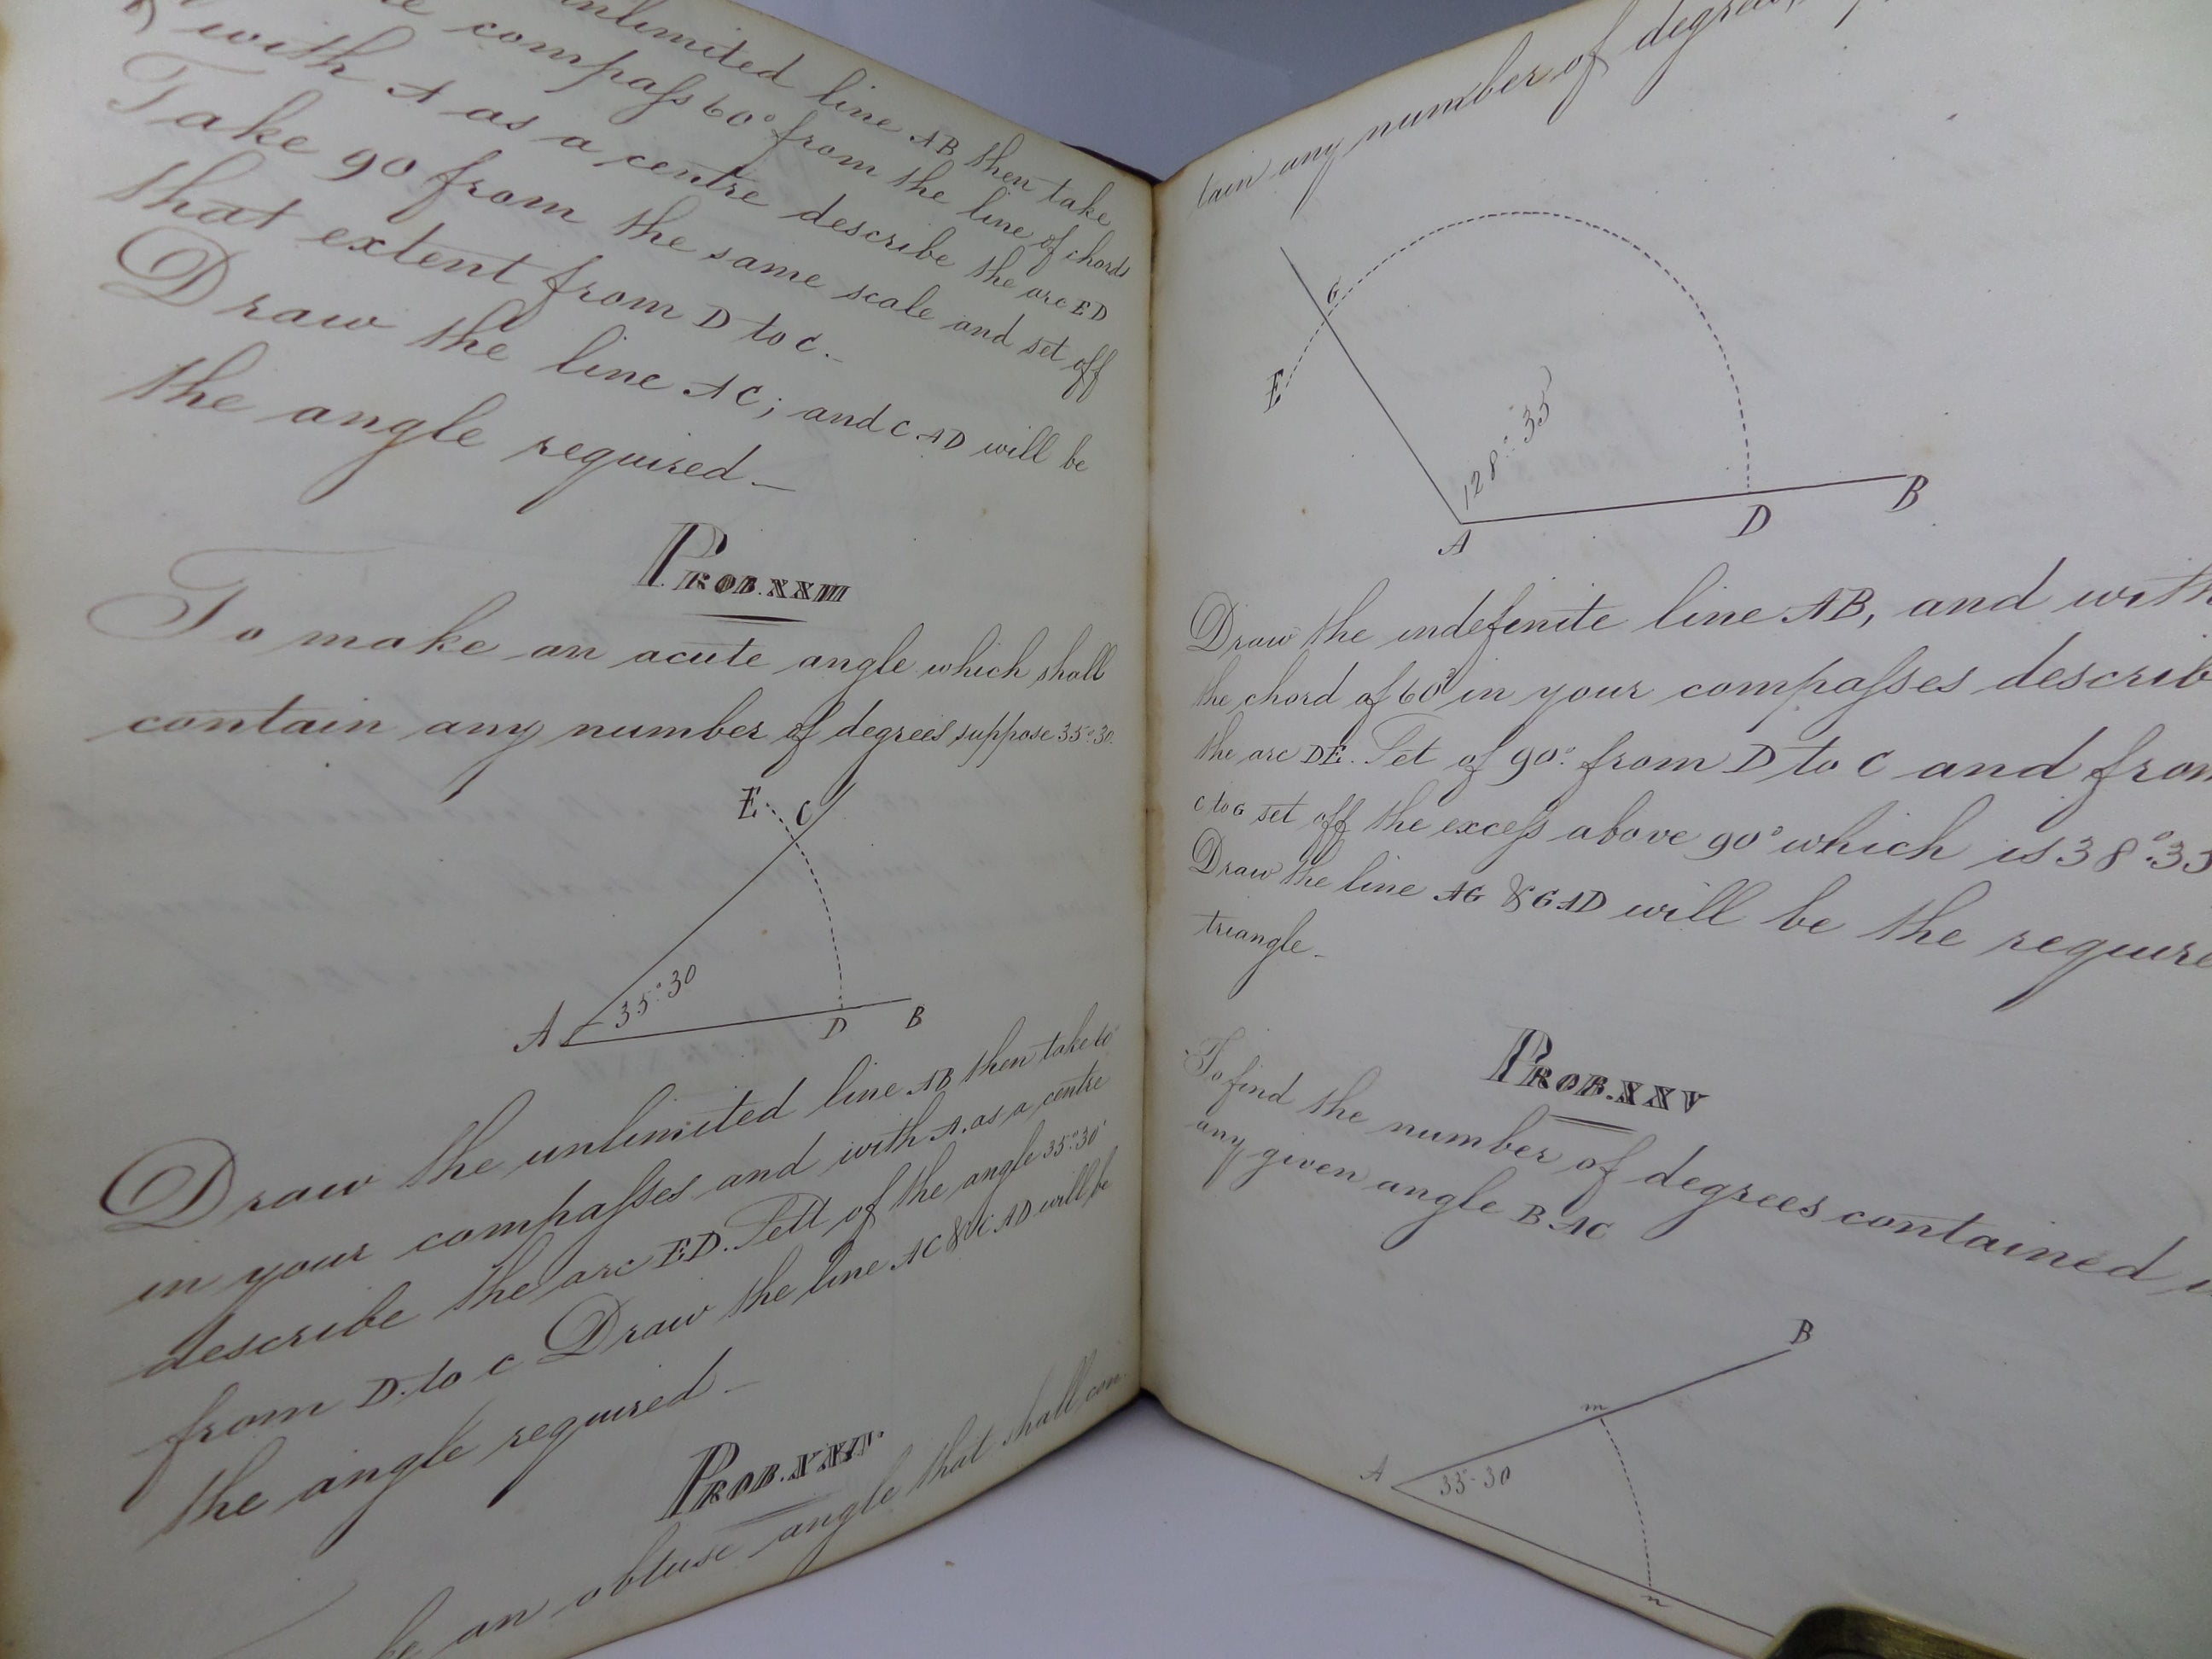 unlimited line AB then take
compaſs 60° from the line of chords
with A as a centre describe the arc ED
Take 90 from the same scale and set off
that extent from D to C.
Draw the line AC; and CAD will be
the angle required
PROB. XXIII
To make an acute angle which shall
contain any number of degrees suppose 35°:30
E C
A 35°:30 D B
Draw the unlimited line AB then take 60
in your compaſses and with A. as a centre
describe the arc ED. Sett of the angle 35°:30'
from D. to C Draw the line AC & CAD will be
the angle required
PROB. XXIV.
be an obtuse angle that shall con
tain any number of degrees,
G
E
128°:35
A D B
Draw the indefinite line AB, and with
the chord of 60° in your compaſses describ
the arc DE. Set of 90° from D to C and from
C to G set off the exceſs above 90° which is 38°:35
Draw the line AG & GAD will be the require
triangle
PROB. XXV
To find the number of degrees contained
any given angle BAC
B
m
A 33°-30
n